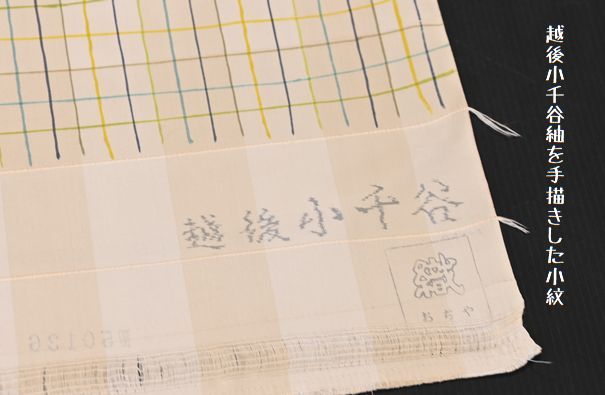 越後小千谷紬を手描きした小紋
越後小千谷
おぢや